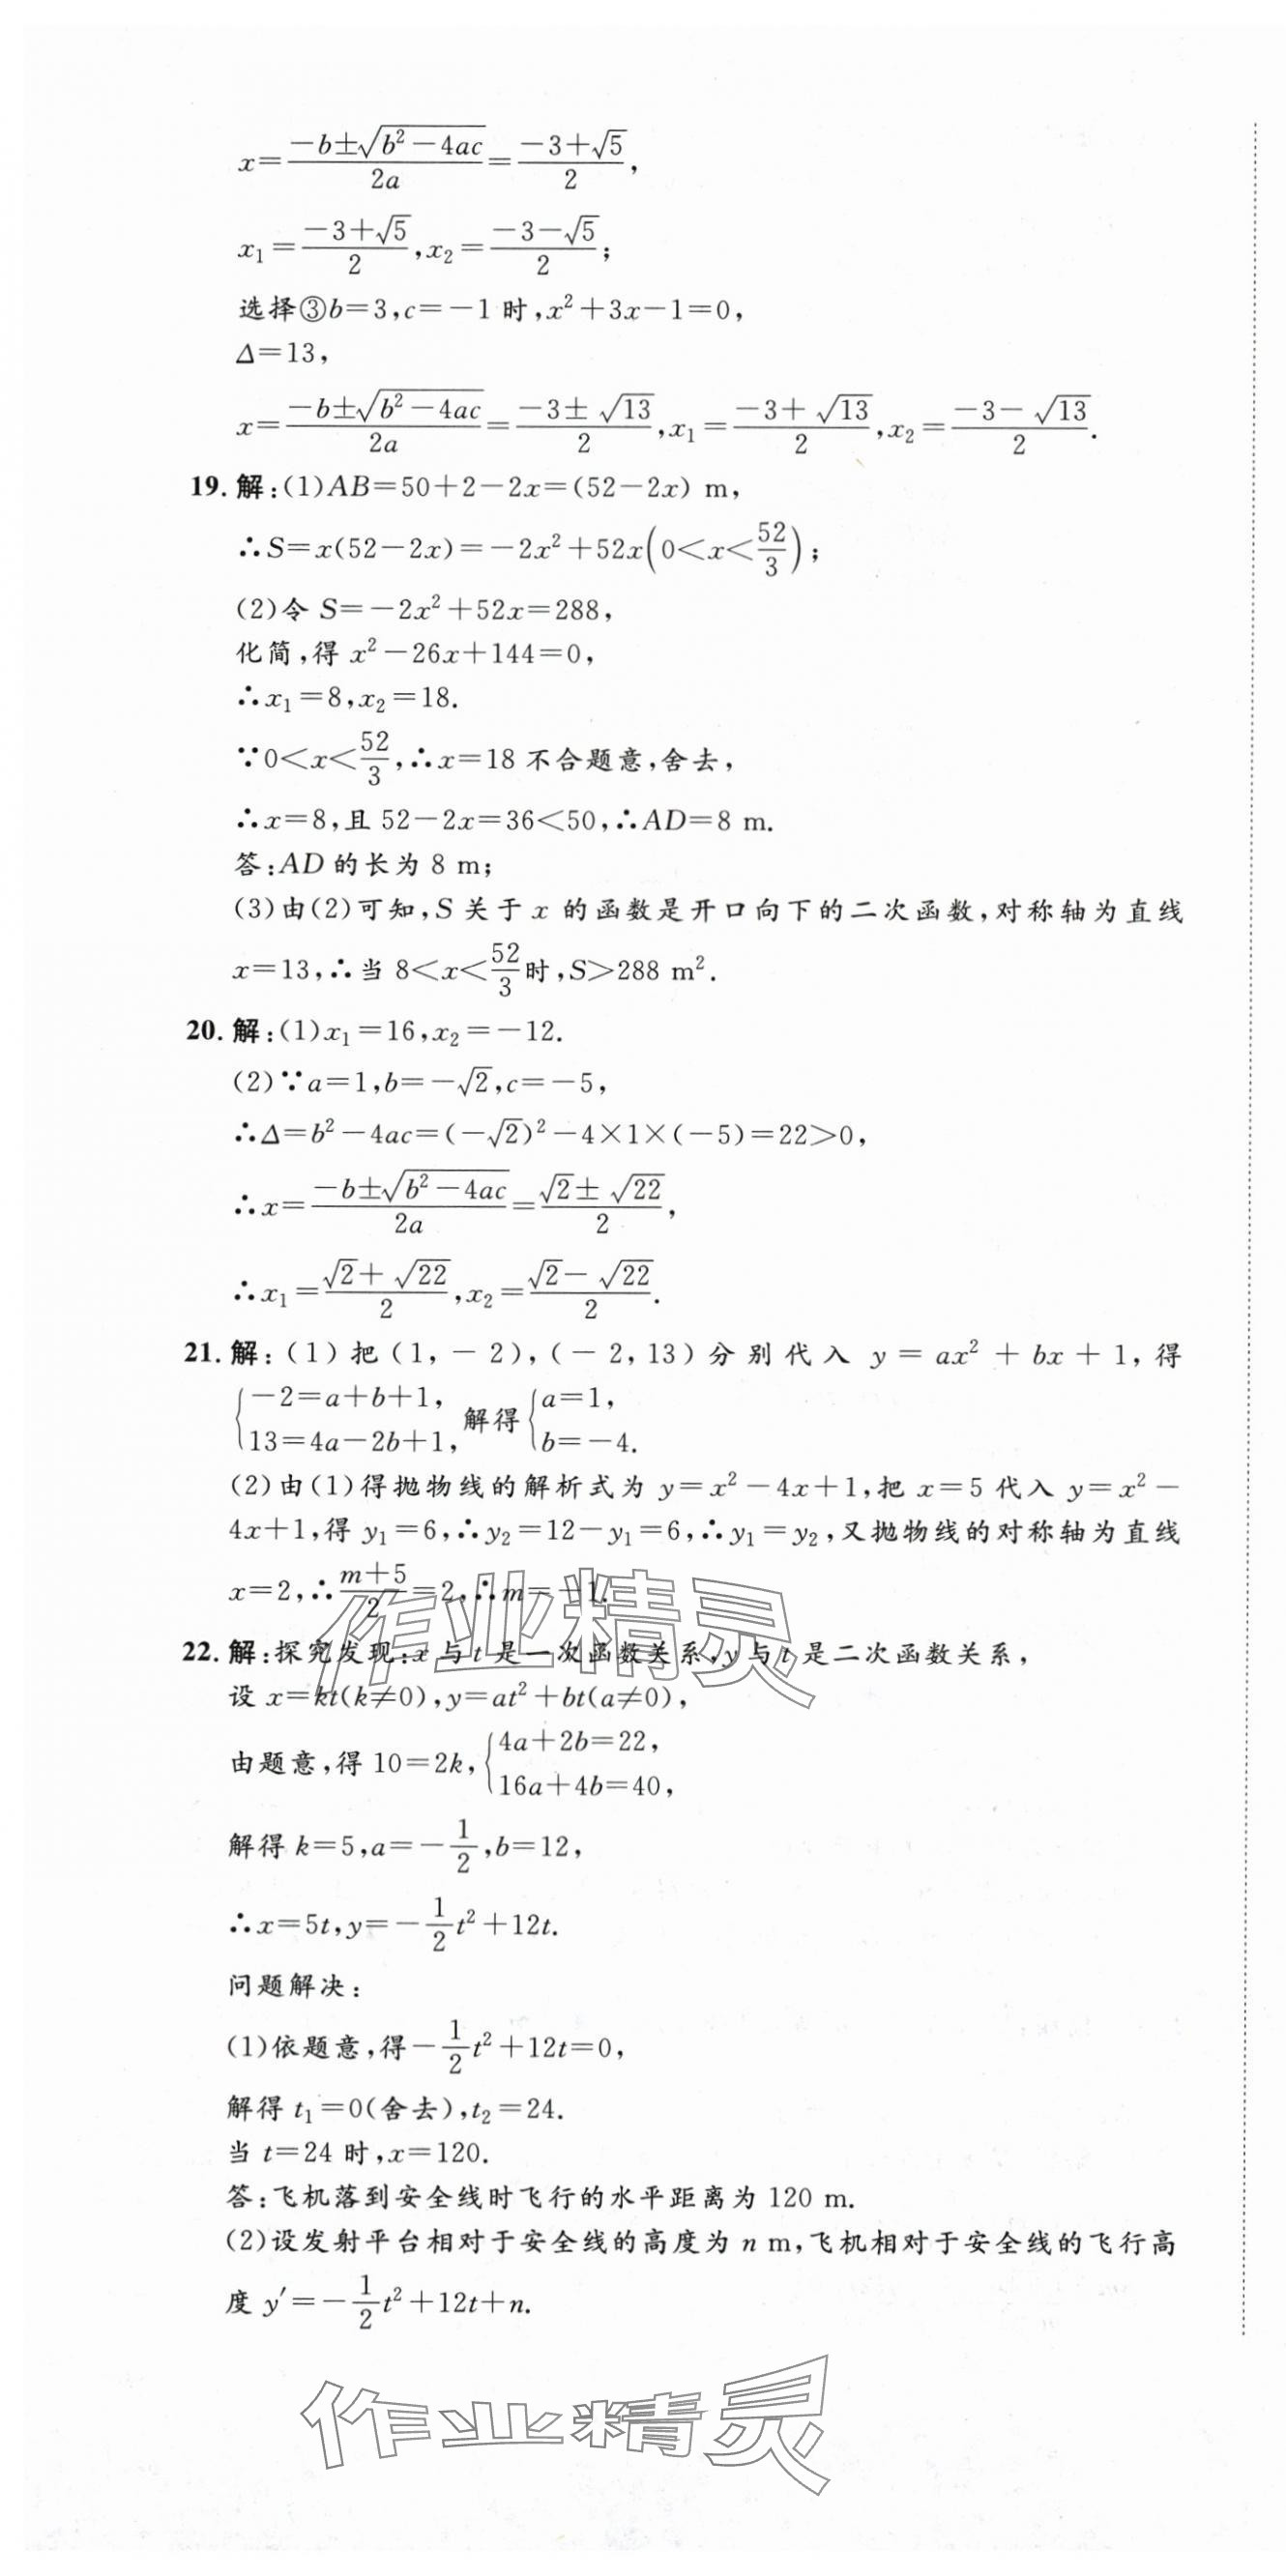 x=\frac{-b±\sqrt{b²-4ac}}{2a}=\frac{-3+\sqrt{5}}{2},
x₁=\frac{-3+\sqrt{5}}{2},x₂=\frac{-3-\sqrt{5}}{2};
选择③b=3,c=-1时,x²+3x-1=0,
Δ=13,
x=\frac{-b±\sqrt{b²-4ac}}{2a}=\frac{-3±\sqrt{13}}{2},x₁=\frac{-3+\sqrt{13}}{2},x₂=\frac{-3-\sqrt{13}}{2}.
19.解:(1)AB=50+2-2x=(52-2x) m,
∴S=x(52-2x)=-2x²+52x(0<x<\frac{52}{3});
(2)令 S=-2x²+52x=288,
化简,得 x²-26x+144=0,
∴x₁=8,x₂=18.
∵0<x<\frac{52}{3},∴x=18 不合题意,舍去,
∴x=8,且 52-2x=36<50,∴AD=8 m.
答:AD的长为 8 m;
(3)由(2)可知,S 关于 x 的函数是开口向下的二次函数,对称轴为直线
x=13,∴当 8<x<\frac{52}{3}时,S>288 m².
20.解:(1)x₁=16,x₂=-12.
(2)∵a=1,b=-\sqrt{2},c=-5,
∴Δ=b²-4ac=(-\sqrt{2})²-4×1×(-5)=22>0,
∴x=\frac{-b±\sqrt{b²-4ac}}{2a}=\frac{\sqrt{2}±\sqrt{22}}{2},
∴x₁=\frac{\sqrt{2}+\sqrt{22}}{2},x₂=\frac{\sqrt{2}-\sqrt{22}}{2}.
21.解:(1)把(1,-2),(-2,13)分别代入 y=ax²+bx+1,得
{-2=a+b+1, 13=4a-2b+1, 解得{a=1, b=-4.
(2)由(1)得抛物线的解析式为 y=x²-4x+1,把 x=5 代入 y=x²-
4x+1,得 y₁=6,∴y₂=12-y₁=6,∴y₁=y₂,又抛物线的对称轴为直线
x=2,∴\frac{m+5}{2}=2,∴m=-1.
22.解:探究发现:x 与 t 是一次函数关系,y 与 t 是二次函数关系,
设 x=kt(k≠0),y=at²+bt(a≠0),
由题意,得 10=2k,{4a+2b=22, 16a+4b=40,
解得 k=5,a=-\frac{1}{2},b=12,
∴x=5t,y=-\frac{1}{2}t²+12t.
问题解决:
(1)依题意,得-\frac{1}{2}t²+12t=0,
解得 t₁=0(舍去),t₂=24.
当 t=24 时,x=120.
答:飞机落到安全线时飞行的水平距离为 120 m.
(2)设发射平台相对于安全线的高度为 n m,飞机相对于安全线的飞行高
度 y′=-\frac{1}{2}t²+12t+n.
作业精灵
作业精灵